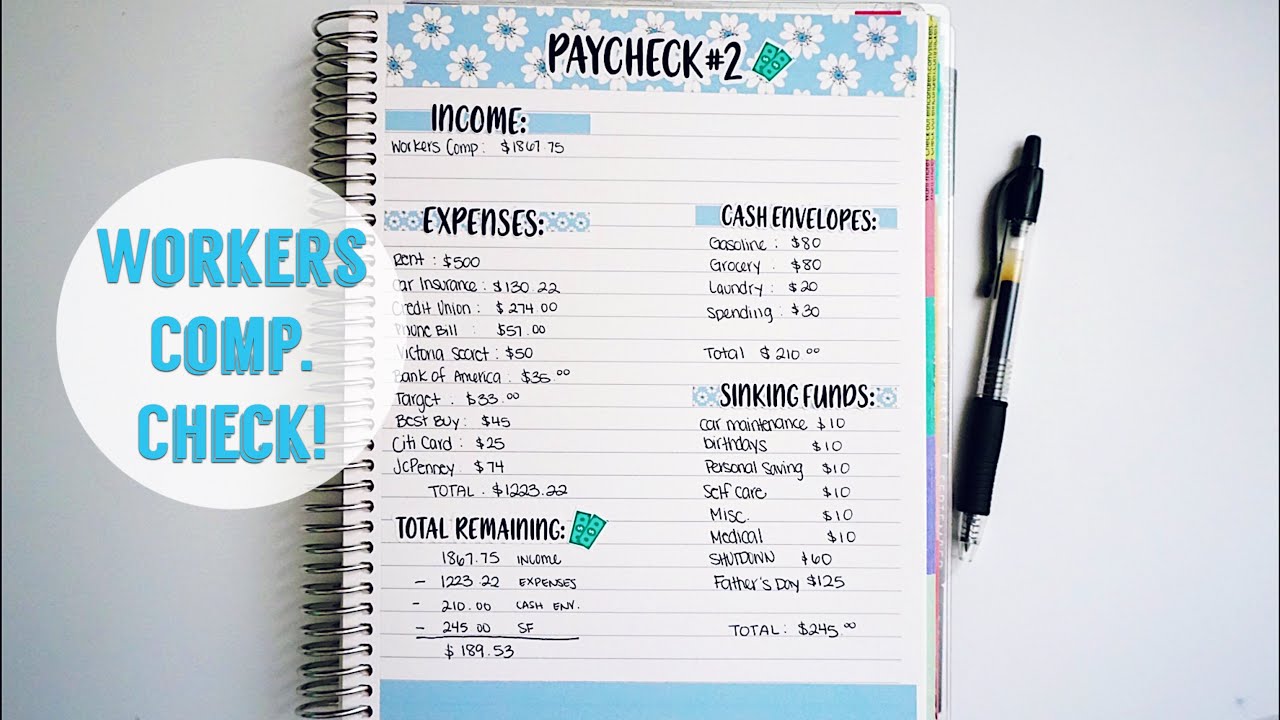 PAYCHECK #2
INCOME:
Workers Comp: $1867.75
EXPENSES:
Rent: $500
Car Insurance: $130.22
Credit Union: $274.00
Phone Bill: $57.00
Victoria Secret: $50
Bank of America: $35.00
Target: $33.00
Best Buy: $45
Citi Card: $25
JcPenney $74
TOTAL. $1223.22
TOTAL REMAINING:
1867.75 INCOME
- 1223.22 EXPENSES
- 210.00 CASH ENV.
- 245.00 SF
$189.53
CASH ENVELOPES:
Gasoline: $80
Grocery: $80
Laundry: $20
Spending: $30
Total $210.00
SINKING FUNDS:
car maintenance $10
birthdays $10
Personal Saving $10
Self care $10
Misc. $10
Medical $10
SHUTDOWN $60
Father's Day $125
TOTAL: $245.00
WORKERS
COMP.
CHECK!